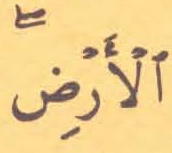 ٱلْأَرْضِۖ